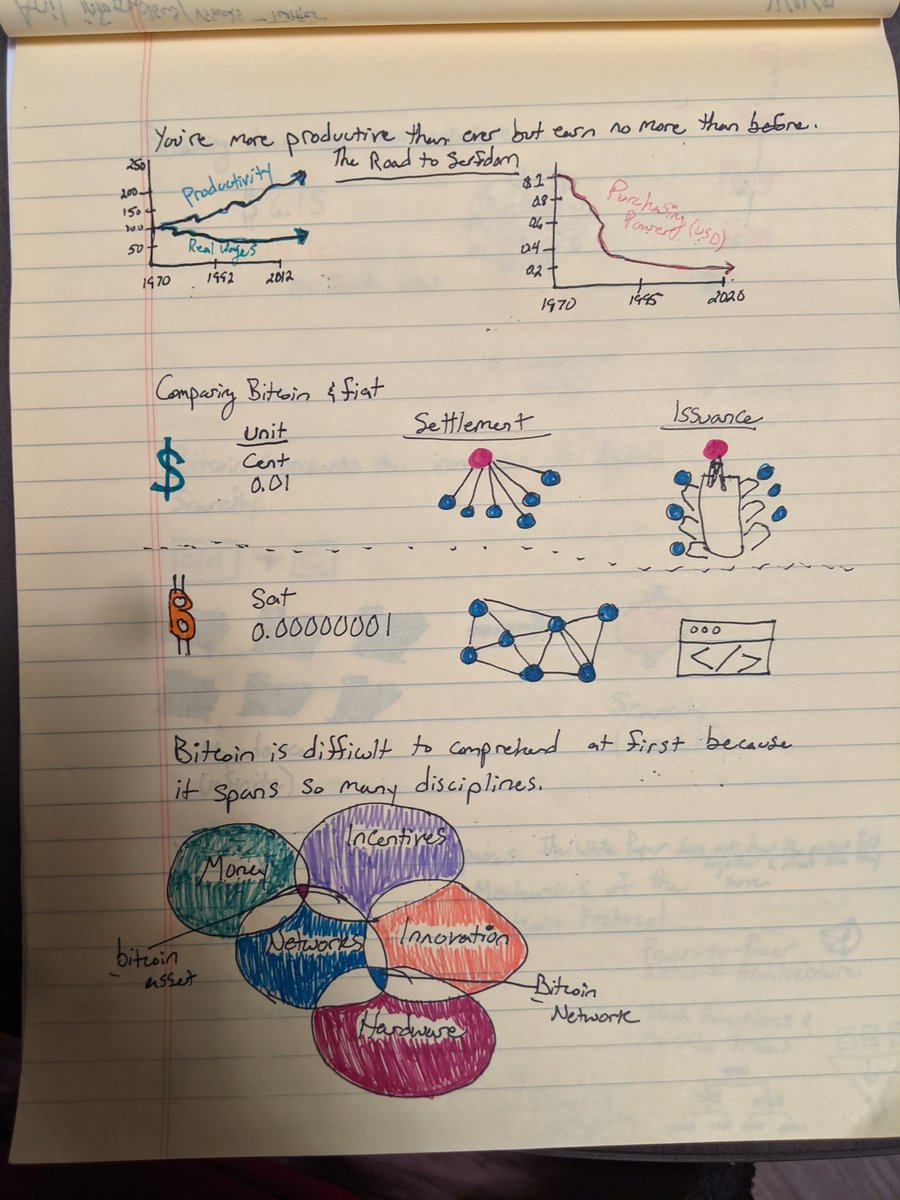 You're more productive than ever but earn no more than before.
The Road to Serfdom
250
200
150
100
50
Productivity
Real Wages
1970
1992
2012
$1
0.8
0.6
0.4
0.2
Purchasing
Power (USD)
1970
1995
2020
Comparing Bitcoin & fiat
Unit
Settlement
Issuance
$
Cent
0.01
Sat
0.00000001
</>
Bitcoin is difficult to comprehend at first because
it spans so many disciplines.
Money
Incentives
Networks
Innovation
Hardware
bitcoin
asset
Bitcoin
Network